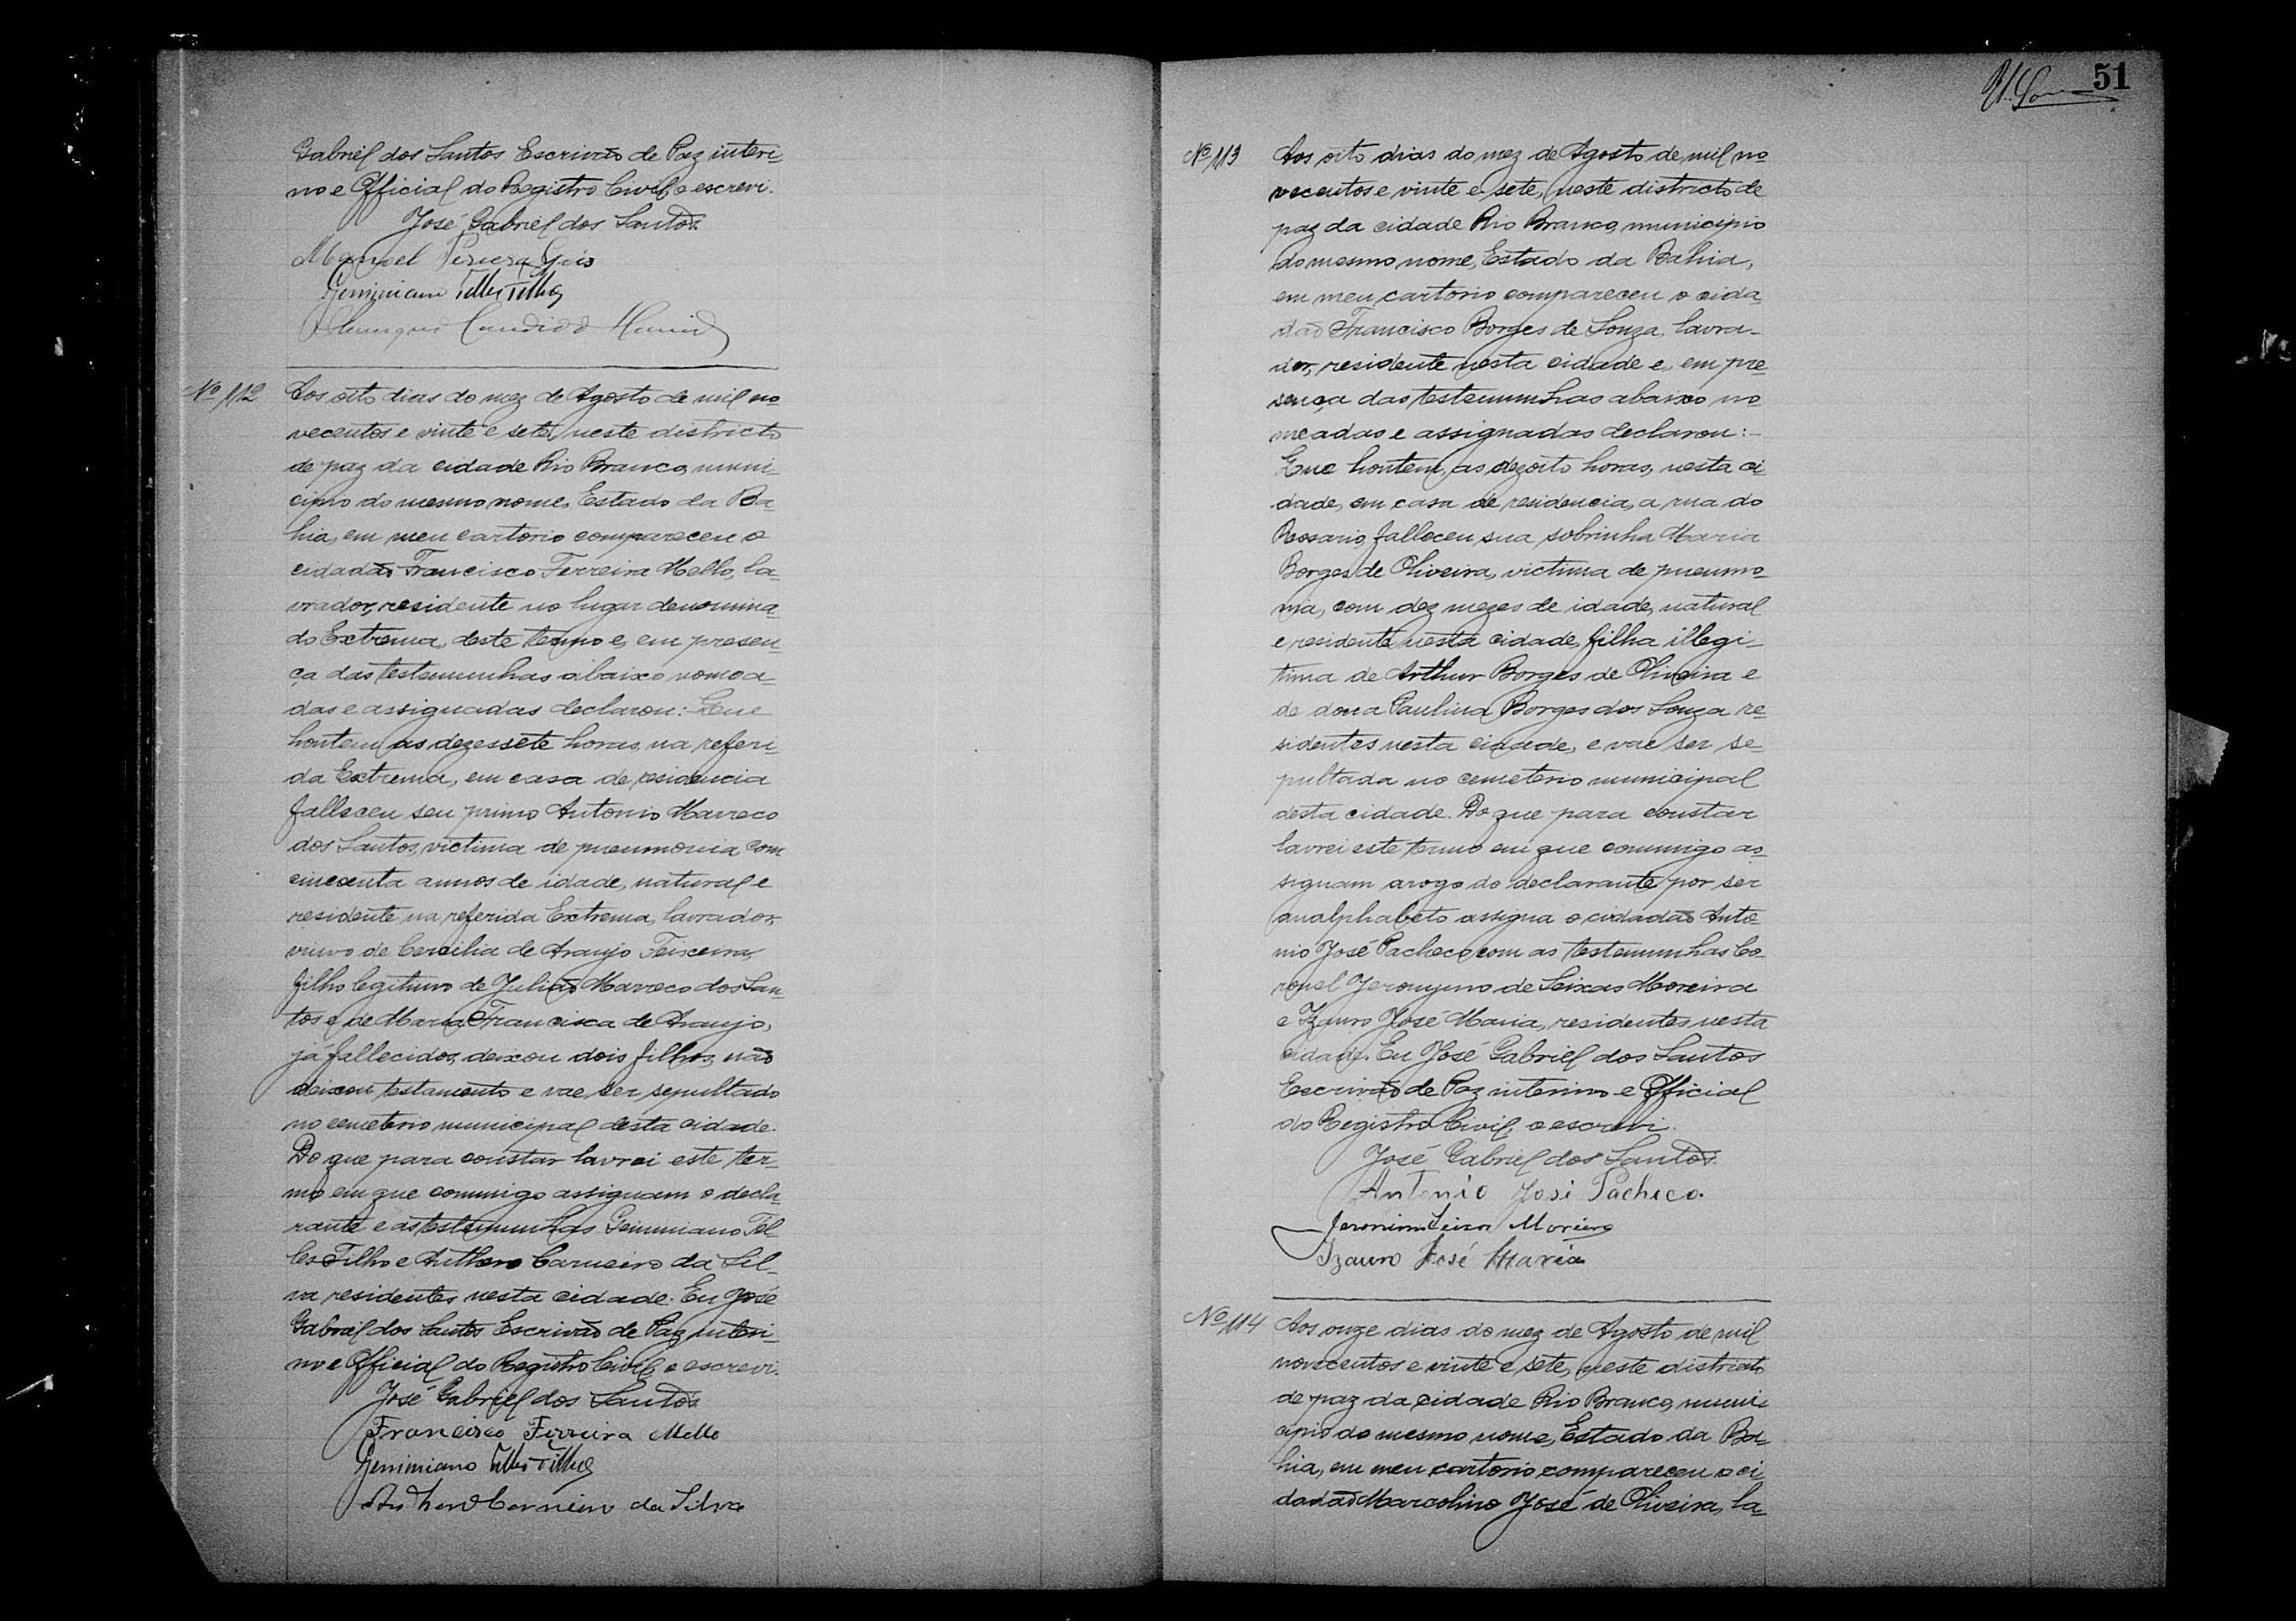 Gabriel dos Santos Escrivão de Paz interi-
no e Official do Registro Civil, o escrevi.
José Gabriel dos Santos.
Manoel Pereira
Geminiano Telles Filho
Candido
Nº 112
Aos oito dias do mez de Agosto de mil no-
vecentos e vinte e sete, neste districto
de paz da cidade Rio Branco, muni-
cipio do mesmo nome, Estado da Ba-
hia, em meu cartorio compareceu o
cidadão Francisco Ferreira Mello, la-
vrador, residente no lugar denomina-
do Extrema, deste termo e, em presen-
ça das testemunhas abaixo nomea-
das e assignadas declarou: Que
hontem as dezessete horas, na referi-
da Extrema, em casa de residencia
falleceu seu primo Antonio Marreco
dos Santos, victima de pneumonia com
cincoenta annos de idade, natural e
residente na referida Extrema, lavrador,
viuvo de Cercilia de Araujo Teixeira,
filho legitimo de Julião Marreco dos San-
tos e de Maria Francisca de Araujo,
já fallecidos, deixou dois filhos, não
deixou testamento e vae ser sepultado
no cemeterio municipal desta cidade.
Do que para constar lavrei este ter-
mo em que commigo assignam o decla-
rante e as testemunhas Geminiano Tel-
les Filho e Anthero Carneiro da Sil-
va residentes nesta cidade. Eu José
Gabriel dos Santos Escrivão de Paz interi-
no e Official do Registro Civil, o escrevi.
José Gabriel dos Santos.
Francisco Ferreira Mello
Geminiano Telles Filho
Anthero Carneiro da Silva
51
Nº 113
Aos oito dias do mez de Agosto de mil no-
vecentos e vinte e sete, neste districto de
paz da cidade Rio Branco, municipio
do mesmo nome, Estado da Bahia,
em meu cartorio compareceu o cida-
dão Francisco Borges de Souza, lavra-
dor, residente nesta cidade e, em pre-
sença das testemunhas abaixo no-
meadas e assignadas declarou:-
Que hontem, as dezoito horas, nesta ci-
dade, em casa de residencia, a rua do
Rosario, falleceu sua sobrinha Maria
Borges de Oliveira, victima de pneumo-
nia, com dez mezes de idade, natural
e residente nesta cidade, filha illegi-
tima de Arthur Borges de Oliveira e
de dona Paulina Borges dos Souza re-
sidentes nesta cidade, e vae ser se-
pultada no cemeterio municipal
desta cidade. Do que para constar
lavrei este termo em que commigo as-
signam arogo do declarante por ser
analphabeto assigna o cidadão Anto-
nio José Pacheco com as testemunhas Co-
ronel Jeronymo de Seixas Moreira
e Izauro José Maria, residentes nesta
cidade. Eu José Gabriel dos Santos
Escrivão de Paz interino e Official
do Registro Civil, o escrevi.
José Gabriel dos Santos.
Antonio José Pacheco.
Jeronimo Seixas Moreira
Izauro José Maria
Nº 114
Aos onze dias do mez de Agosto de mil
novecentos e vinte e sete, neste districto
de paz da cidade Rio Branco, muni-
cipio do mesmo nome, Estado da Ba-
hia, em meu cartorio compareceu o ci-
dadão Marcolino José de Oliveira, la-